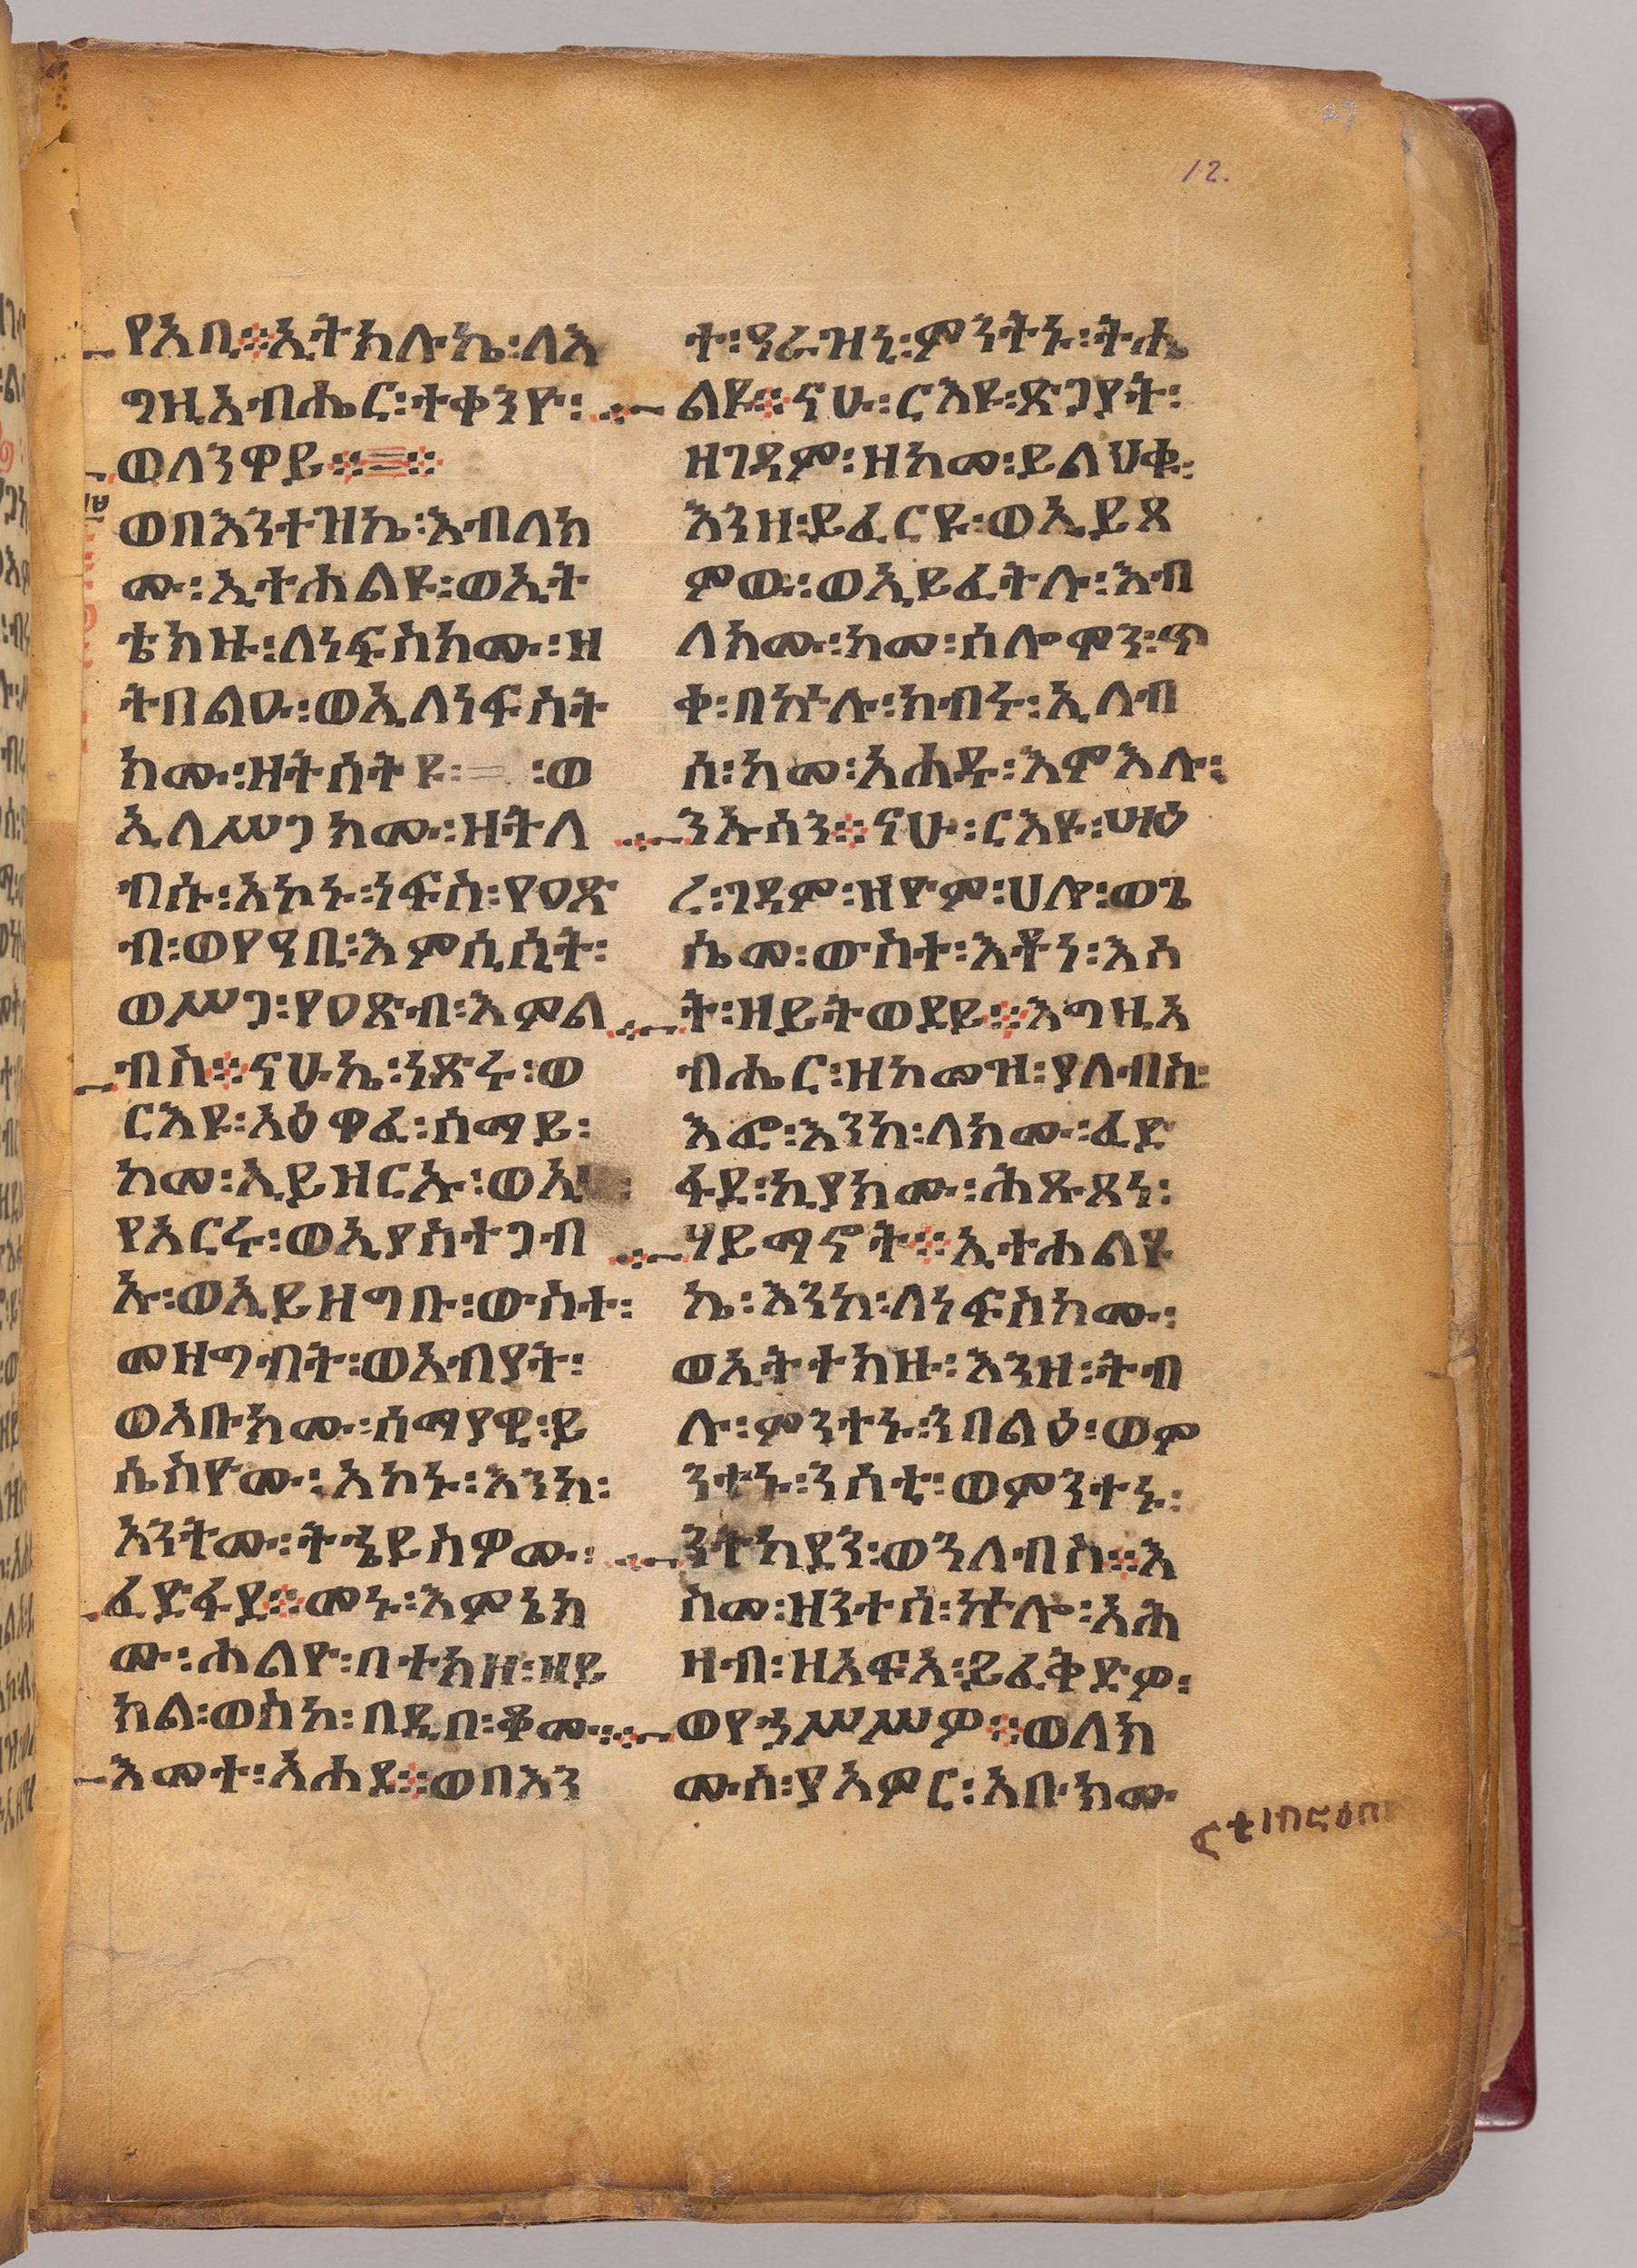 27
12.
የአቢ፨ኢትክሉኬ፡ለእ
ግዚአብሔር፡ተቀንዮ፡
ወለንዋይ፨፨
ወበእንተዝኬ፡እብለክ
ሙ፡ኢተሐልዩ፡ወኢት
ቴክዙ፡ለነፍስክሙ፡ዘ
ትበልዑ፡ወኢለነፍስት
ክሙ፡ዘትሰትዩ፡፡ወ
ኢለሥጋክሙ፡ዘትለ
ብሱ፡አኮኑ፡ነፍስ፡የዐጽ
ብ፡ወየዓቢ፡እምሲሲት፡
ወሥጋ፡የዐጽብ፡እምል
ብስ፨ናሁኬ፡ነጽሩ፡ወ
ርእዩ፡አዕዋፈ፡ሰማይ፡
ከመ፡ኢይዘርኡ፡ወኢ፡
የአርሩ፡ወኢያስተጋብ
ኡ፡ወኢይዘግቡ፡ውስተ፡
መዝግብት፡ወአብያት፡
ወአቡክሙ፡ሰማያዊ፡ይ
ሴስዮሙ፡አኮኑ፡እንከ፡
አንትሙ፡ትኄይስዎሙ፡
ፈድፋደ፨መኑ፡እምኔክ
ሙ፡ሐልዮ፡በተክዘ፡ዘይ
ክል፡ወስከ፡በዲበ፡ቆሙ፡
እመተ፡አሐደ፨ወበእን
ተ፡ዓራዝኒ፡ምንትኑ፡ትሔ
ልዩ፨ናሁ፡ርእዩ፡ጽጌያት፡
ዘገዳም፡ዘከመ፡ይልህቁ፡
እንዘ፡ይፈርዩ፡ወኢይጻ
ምው፡ወኢይፈትሉ፡እብ
ለክሙ፡ከመ፡ሰሎሞን፡ጥ
ቀ፡በኵሉ፡ክብሩ፡ኢለብ
ሰ፡ከመ፡አሐዱ፡እምእሉ፡
ንኡሰን፨ናሁ፡ርእዩ፡ሣዕ
ረ፡ገዳም፡ዘዮም፡ሀሎ፡ወጌ
ሴመ፡ውስተ፡እቶነ፡እሳ
ት፡ዘይትወደይ፨እግዚአ
ብሔር፡ዘከመዝ፡ያለብስ፡
እፎ፡እንከ፡ለክሙ፡ፈድ
ፋደ፡ኪያክሙ፡ሕጹጻነ፡
ሃይማኖት፨ኢተሐልዩ
ኬ፡እንከ፡ለነፍስክሙ፡
ወኢትተክዙ፡እንዘ፡ትብ
ሉ፡ምንተኑ፡ንበልዕ፡ወም
ንተኑ፡ንሰቲ፡ወምንተኑ፡
ንትከደን፡ወንለብስ፨እ
ስመ፡ዘንተሰ፡ኵሎ፡አሕ
ዛብ፡ዘአፍአ፡ይፈቅድዎ፡
ወየኃሥሥዎ፨ወለክ
ሙሰ፡ያአምር፡አቡክሙ